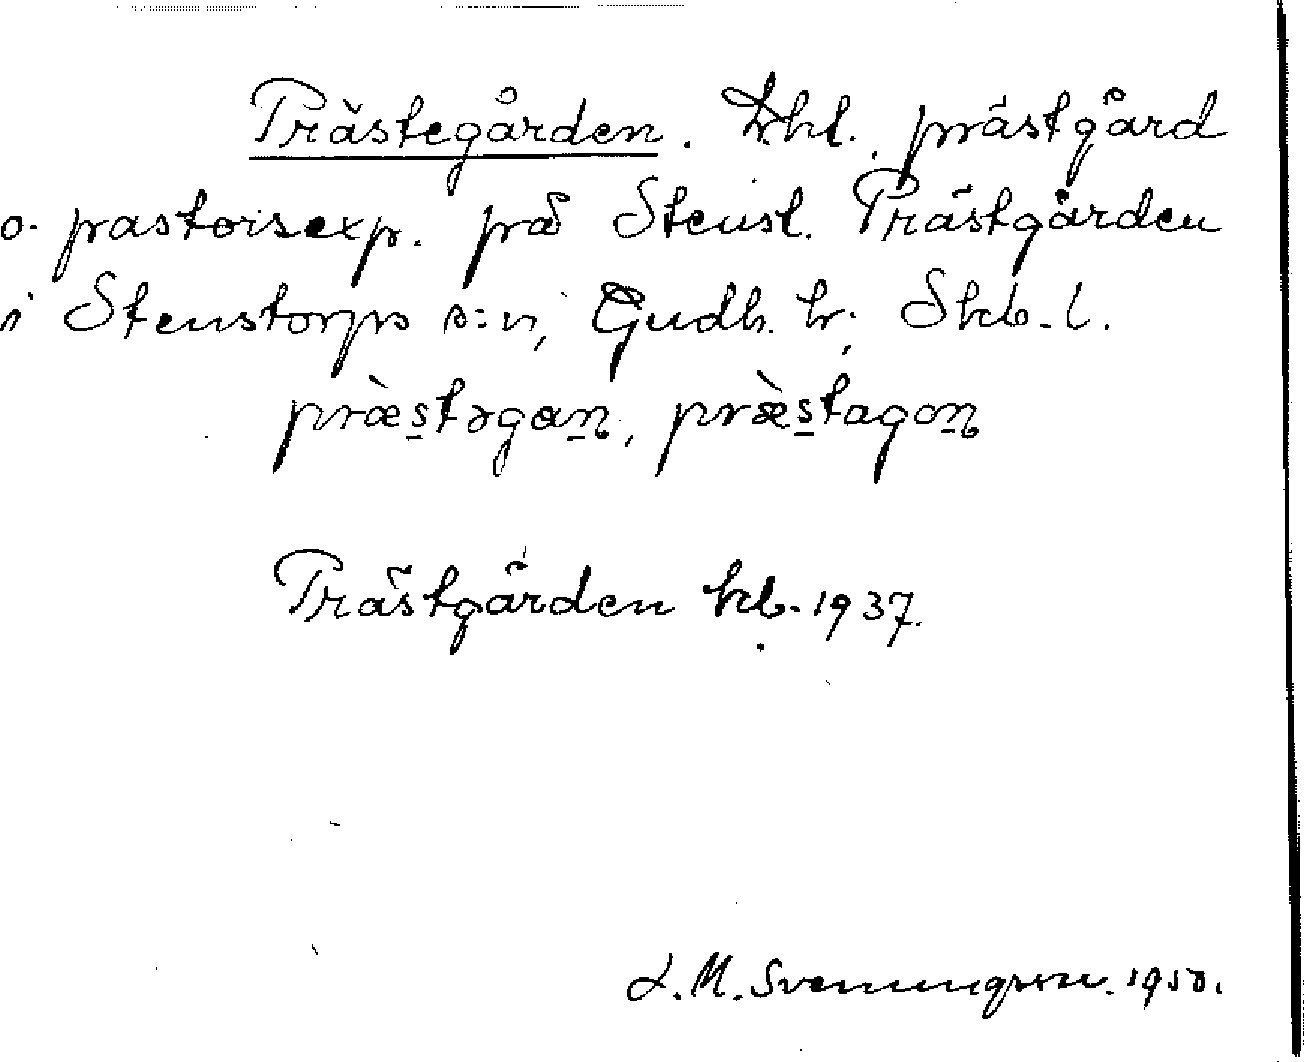 Prästegården. Khl. prästgård
o. pastorsexp. på Stensl. Prästgården
i Stenstorps s:n, Gudh. hr; Skb. l.
præ̀stəgan, præ̀stagon
Prästgården kb. 1937.
L. M. Svenungsson. 1950.